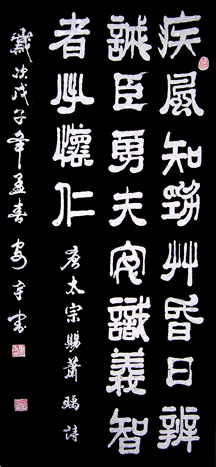 疾風知勁艸昏日辨
誠臣勇夫安識義智
者必懷仁
唐太宗賜蕭瑀詩
歲次戊子年孟春书